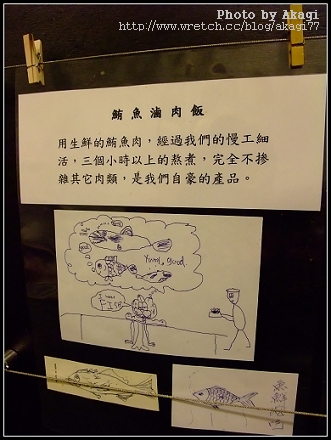 Photo by Akagi
http://www.wretch.cc/blog/akagi77
鮪魚滷肉飯
用生鮮的鮪魚肉，經過我們的慢工細
活，三個小時以上的熬煮，完全不摻
雜其它肉類，是我們自豪的產品。
Yumi, good